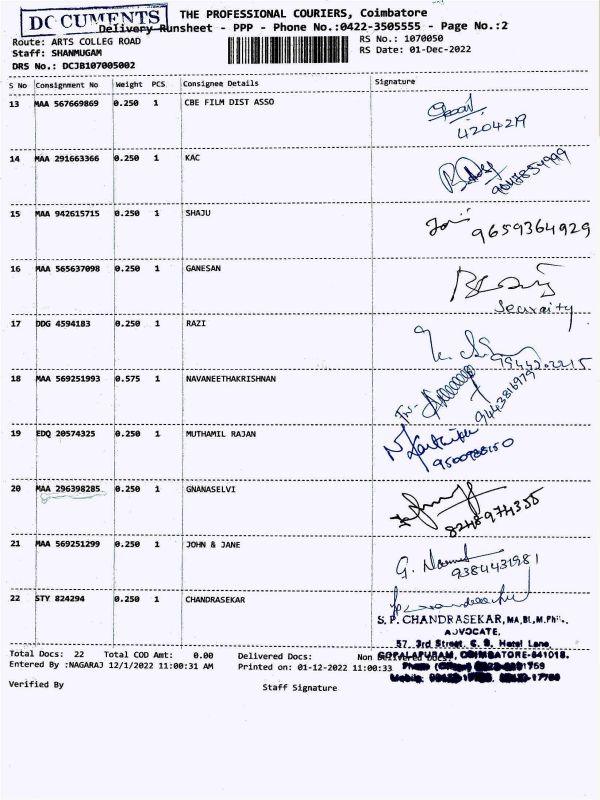 DOCUMENTS
THE PROFESSIONAL COURIERS, Coimbatore
Delivery Runsheet - PPP - Phone No.:0422-3505555 - Page No.:2
Route: ARTS COLLEG ROAD
RS No.: 1070050
Staff: SHANMUGAM
RS Date: 01-Dec-2022
DRS No.: DCJB107005002
S No Consignment No Weight PCS Consignee Details Signature
13 MAA 567669869 0.250 1 CBE FILM DIST ASSO
4204219
14 MAA 291663366 0.250 1 KAC
15 MAA 942615715 0.250 1 SHAJU
9659364929
16 MAA 565637098 0.250 1 GANESAN
Security
17 DDG 4594183 0.250 1 RAZI
18 MAA 569251993 0.575 1 NAVANEETHAKRISHNAN
9443816979
19 EDQ 20574325 0.250 1 MUTHAMIL RAJAN
20 MAA 296398285 0.250 1 GNANASELVI
8248974355
21 MAA 569251299 0.250 1 JOHN & JANE
9384431981
22 STY 824294 0.250 1 CHANDRASEKAR
S. P. CHANDRASEKAR, MA, BL, M.Phil.,
ADVOCATE,
57, 3rd Street, C. S. Hotel Lane,
GOPALAPURAM, COIMBATORE-641018.
Total Docs: 22 Total COD Amt: 0.00 Delivered Docs: Non Delivered Docs:
Entered By :NAGARAJ 12/1/2022 11:00:31 AM Printed on: 01-12-2022 11:00:33
Verified By
Staff Signature